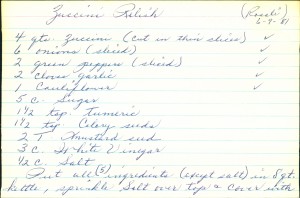 Zuccini Relish
(Rosale'
6-9-81
4 qts zuccini (cut in thin slices) ✓
6 onions (sliced) ✓
2 green peppers (sliced) ✓
2 cloves garlic ✓
1 Cauliflower ✓
5 c. Sugar
1 1/2 tsp. tumeric
1 1/2 tsp. Celery seeds
2 T Mustard seed
3 c. White Vinegar
1/2 c. Salt
Put all (5) ingredients (except salt) in 8 qt.
kettle, sprinkle Salt over top & cover with